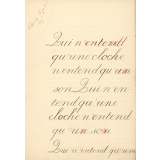 Qui n'entend
qu'une cloche
n'entend qu'un
son Qui n'en-
tend qu'une
cloche n'entend
qu'un son
Qui n'entend qu'une